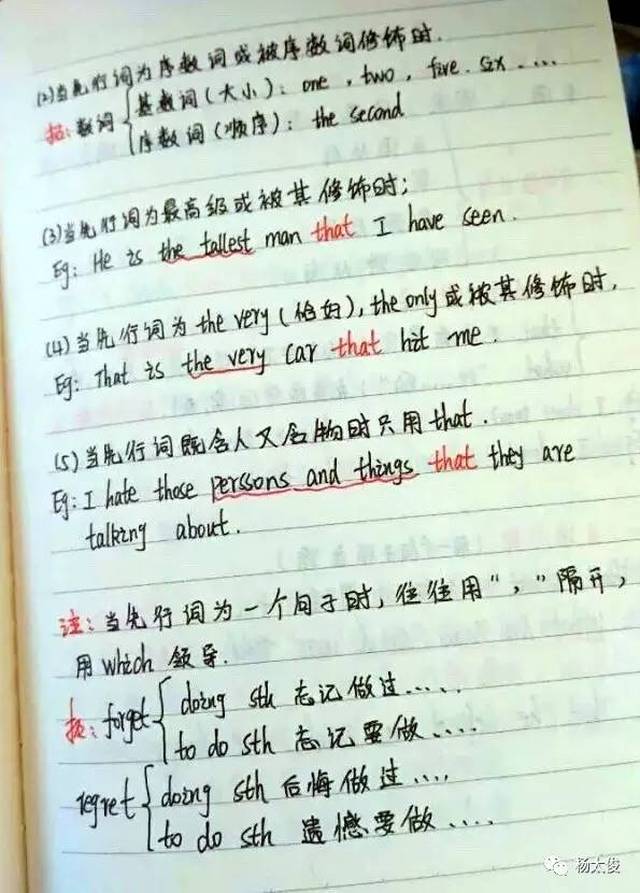 (2)当先行词为序数词或被序数词修饰时.
拓:数词{基数词(大小):one,two,five.six....
序数词(顺序):the second
(3)当先行词为最高级或被其修饰时;
Eg: He is the tallest man that I have seen.
(4)当先行词为the very(恰好),the only或被其修饰时,
Eg: That is the very car that hit me.
(5)当先行词既含人又含物时只用that.
Eg: I hate those perssons and things that they are
talking about.
注:当先行词为一个句子时,往往用","隔开,
用which领导.
拓:forget{doing sth 忘记做过.....
to do sth 忘记要做....
regret{doing sth 后悔做过....
to do sth 遗憾要做....
杨太俊